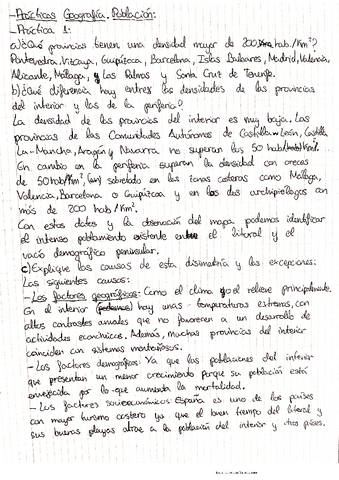 - Prácticas Geografía. Población:
- Práctica 1:
a) ¿Qué provincias tienen una densidad mayor de 200 hab./Km²?
Pontevedra, Vizcaya, Guipúzcoa, Barcelona, Islas Baleares, Madrid, Valencia,
Alicante, Málaga, y Las Palmas y Santa Cruz de Tenerife.
b) ¿Qué diferencia hay entres las densidades de las provincias
del interior y las de la periferia?
La densidad de las provincias del interior es muy baja. Las
provincias de las Comunidades Autónomas de Castilla y León, Castilla
La-Mancha, Aragón y Navarra no superan los 50 hab/Km².
En cambio en la periferia superan la densidad con creces
de 50 hab/Km², sobretodo en las zonas costeras como Málaga,
Valencia, Barcelona o Guipúzcoa y en los dos archipiélagos con
más de 200 hab/Km².
Con estos datos y la observación del mapa podemos identificar
el intenso poblamiento existente entre el litoral y el
vacío demográfico peninsular.
c) Explique las causas de esta disimetría y las excepciones:
Las siguientes causas:
- Los factores geográficos: Como el clima y el relieve principalmente.
En el interior hay unas temperaturas extremas, con
altos contrastes anuales que no favorecen a un desarrollo de
actividades económicas. Además, muchas provincias del interior
coinciden con sistemas montañosos.
- Los factores demográficos: Ya que las poblaciones del interior
que presentan un menor crecimiento porque su población está
envejecida por lo que aumenta la mortalidad.
- Los factores socioeconómicos: España es uno de los países
con mayor turismo costero ya que el buen tiempo del litoral y
sus buenas playas atrae a la población del interior y otros países.